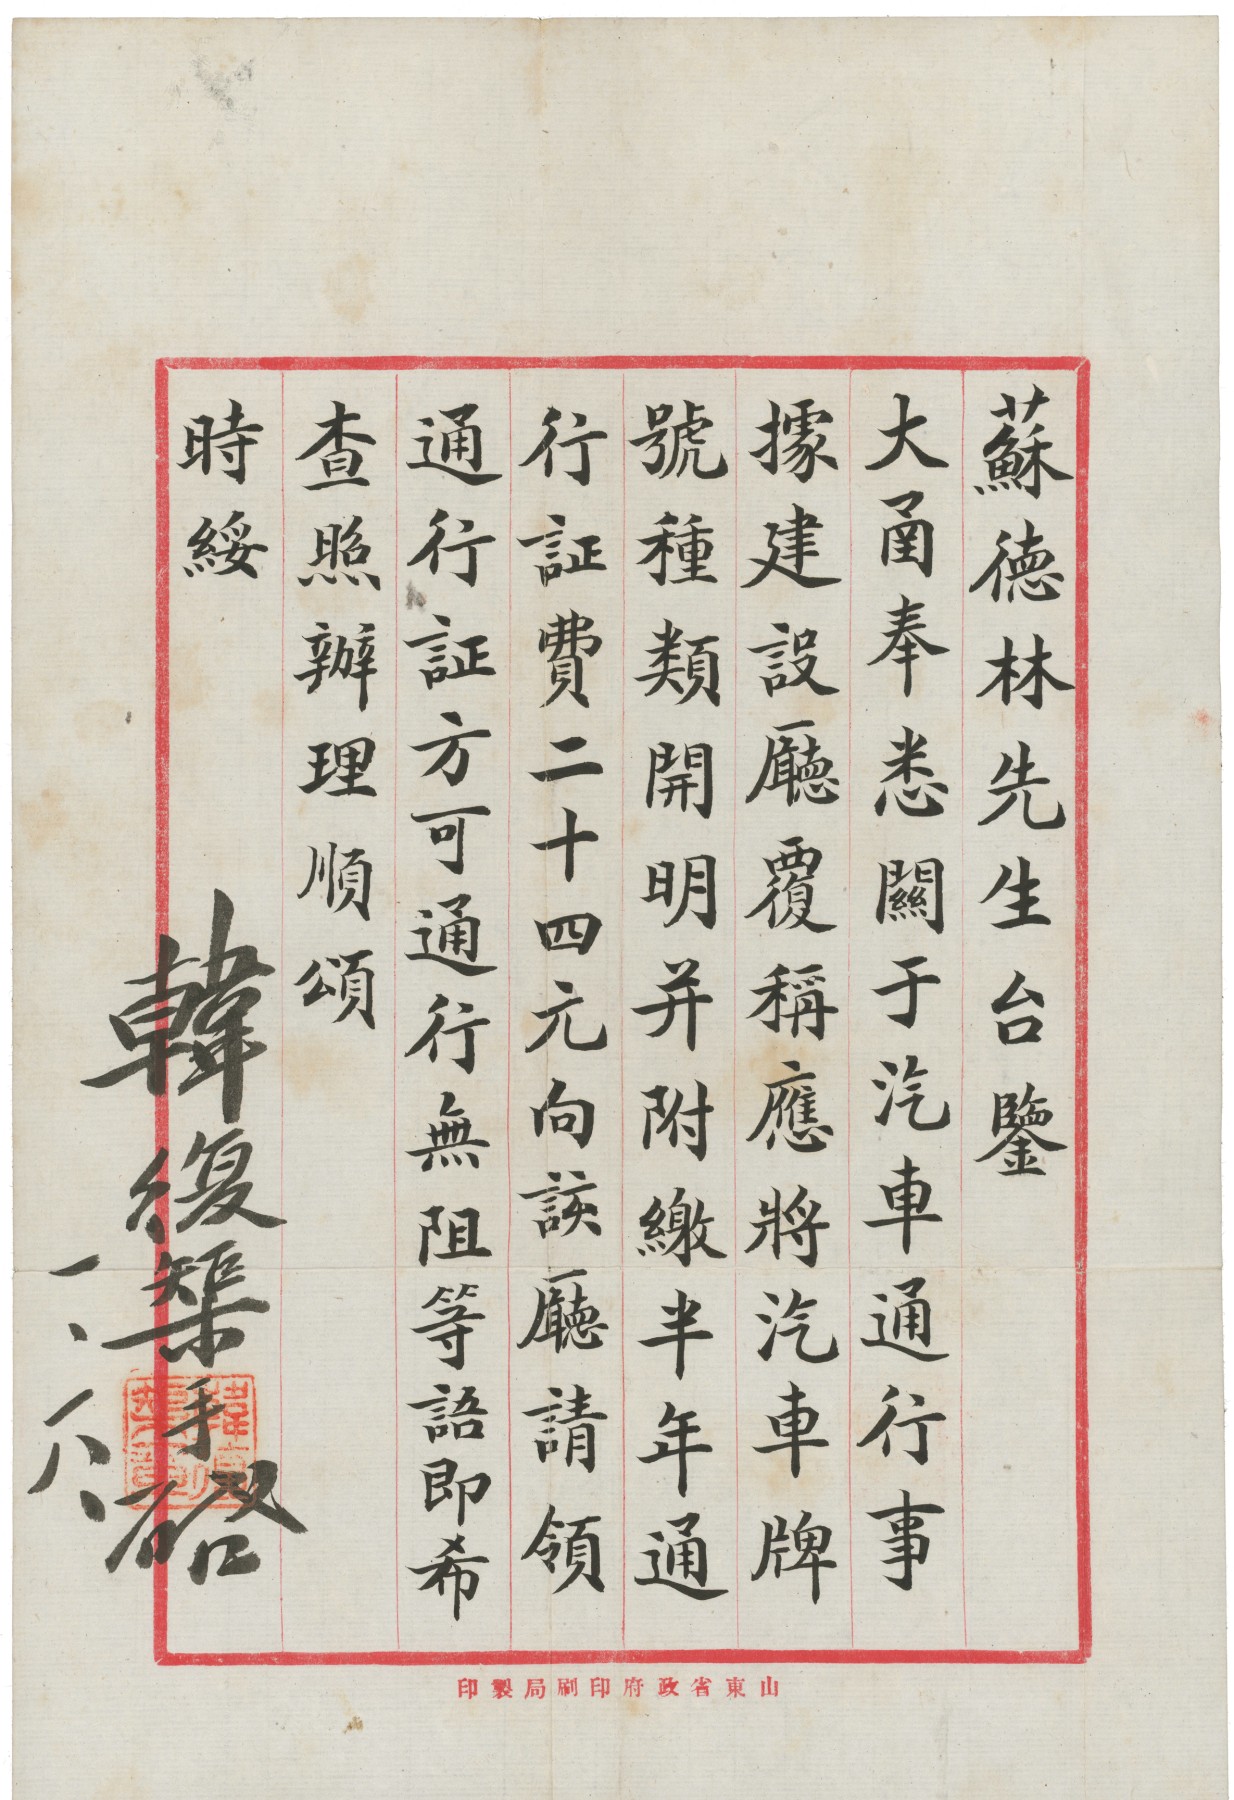 蘇德林先生台鑒
大函奉悉關于汽車通行事
據建設廳覆稱應將汽車牌
號種類開明并附繳半年通
行証費二十四元向該廳請領
通行証方可通行無阻等語即希
查照辦理順頌
時綏
韓復榘手啓
韓復榘章
山東省政府印刷局製印